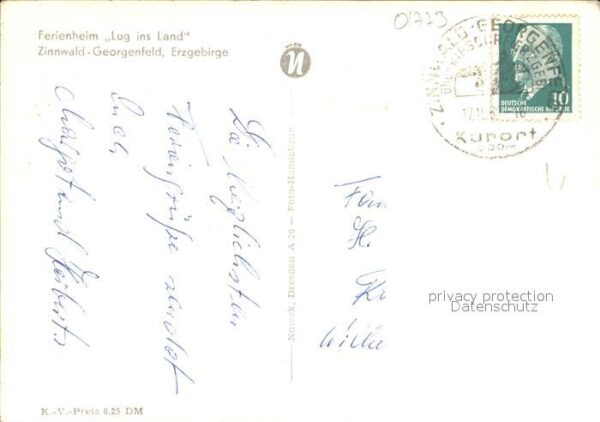 Ferienheim „Lug ins Land"
Zinnwald-Georgenfeld, Erzgebirge
0723
ZINNWALD-GEORGENFE
Kurort
DEUTSCHE
DEMOKRATISCHE
10
Die herzlichsten
Feriengrüße sendet
Euch
und Herbert
Nowak, Dresden A 20 — Foto-Handabzug
Fam
H.
Kr
privacy protection
Datenschutz
K.-V.-Preis 0,25 DM